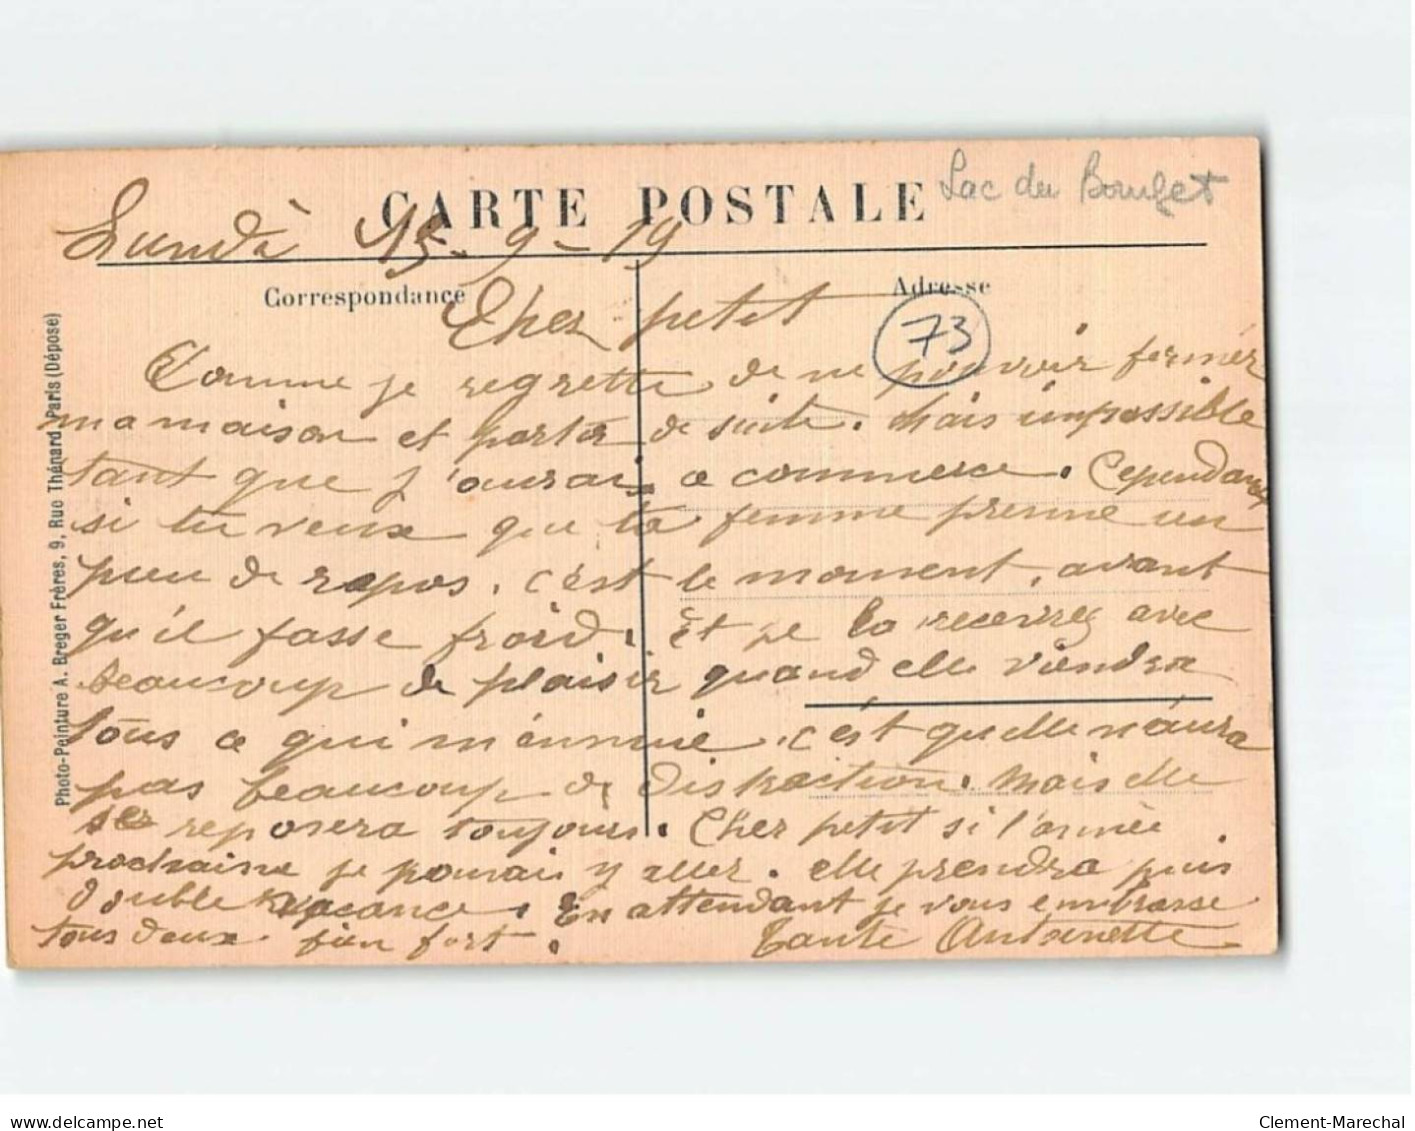 CARTE POSTALE
Lac du Bourget
Lundi 15-9-19
Correspondance
Adresse
73
Cher petit
Comme je regrette de ne pouvoir fermér
ma maison et partir de suite. Mais impossible
tant que j'aurai ce commerce. Cependant
si tu veux que ta femme prenne un
peu de repos. c'est le moment, avant
qu'il fasse froid. Et je la recevrez avec
beaucoup de plaisir quand elle viendra
tous ce qui m'énnuie, c'est quelle n'aura
pas beaucoup de distraction. Mais elle
se reposera toujours. Cher petit si l'année
prochaine je pourrai y aller. elle prendra puis
double vacance. En attendant je vous embrasse
tous deux bien fort.
Tante Antoinette
Photo-Peinture A. Breger Frères, 9, Rue Thénard Paris (Déposé)
www.delcampe.net
Clement-Marechal